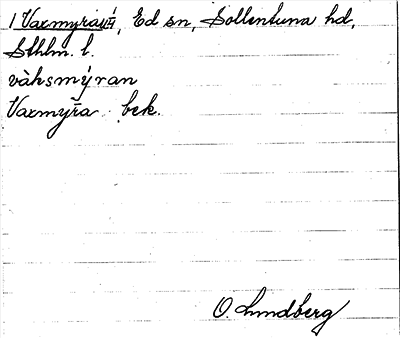 1 Vaxmyran, Ed sn, Sollentuna hd,
Sthlm. l.
vàksmýran
Vaxmyra bek.
O. Lundberg